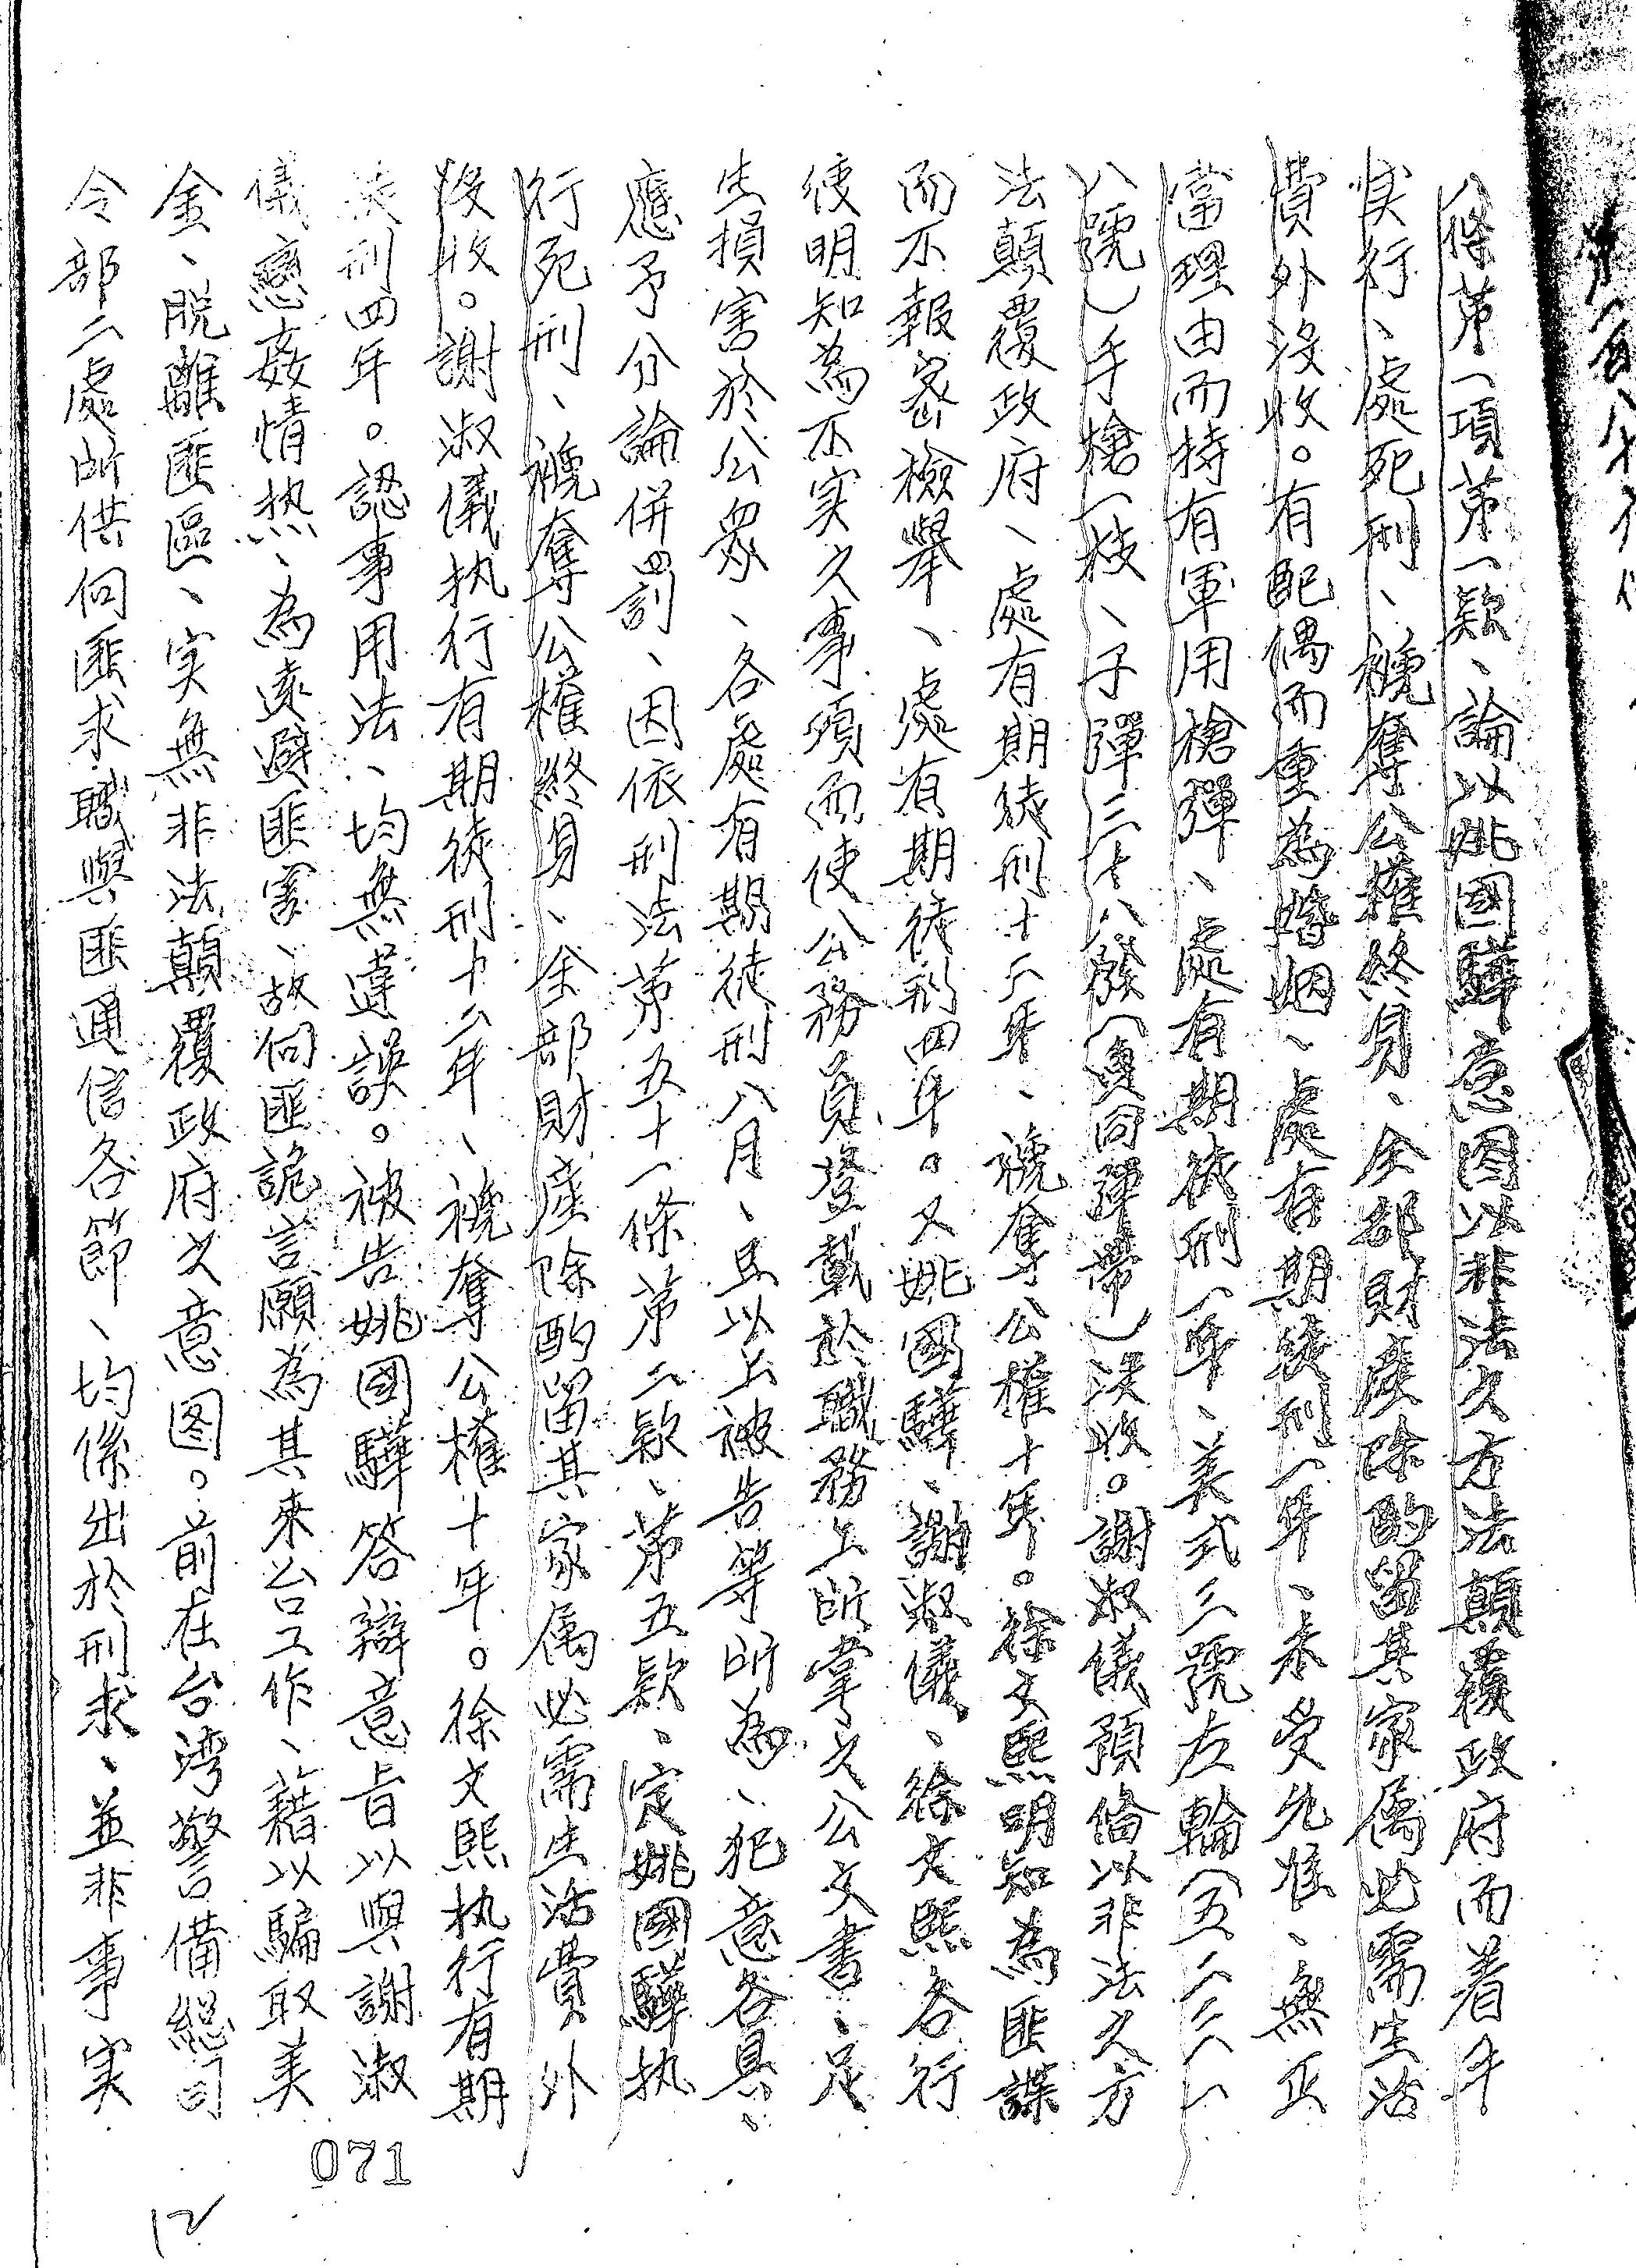 八條第一項第一款、論以姚國驊意图以非法之方法顛覆政府而着手
实行、處死刑、褫奪公權終身、全部財產除酌留其家属必需生活
費外沒收。有配偶而重為婚姻、處有期徒刑一年、未受允准、無正
當理由而持有軍用槍彈、處有期徒刑一年、美式三號左輪(五二三一一
八號)手槍一枝、子彈三十八發(連同彈帶)沒收。謝淑儀預备以非法之方
法顛覆政府、處有期徒刑十二年、褫奪公權十年。徐文熙明知為匪諜
而不報密檢舉、處有期徒刑四年。又姚國驊、謝淑儀、徐文熙各行
使明知為不实之事項而使公務員登載於職務上所掌之公文書、足
生損害於公眾、各處有期徒刑八月、且以上被告等所為、犯意各具、
應予分論併罰、因依刑法第五十一條第二款、第五款、定姚國驊执
行死刑、褫奪公權終身、全部財產除酌留其家属必需生活費外
沒收。謝淑儀执行有期徒刑十二年、褫奪公權十年。徐文熙执行有期
徒刑四年。認事用法、均無違誤。被告姚國驊答辯意旨以與謝淑
儀戀姦情热、為遠避匪害、故向匪詭言願為其來台工作、藉以騙取美
金、脱離匪區、实無非法顛覆政府之意图。前在台湾警备總司
令部二處所供向匪求職與匪通信各節、均係出於刑求、並非事实
071
12